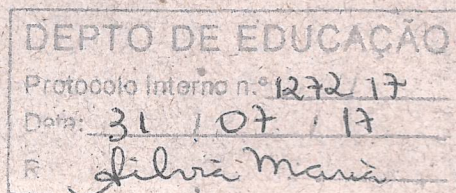 DEPTO DE EDUCAÇÃO
Protocolo Interno n.º 1272/17
Data: 31 / 07 / 17
R Silvia Maria